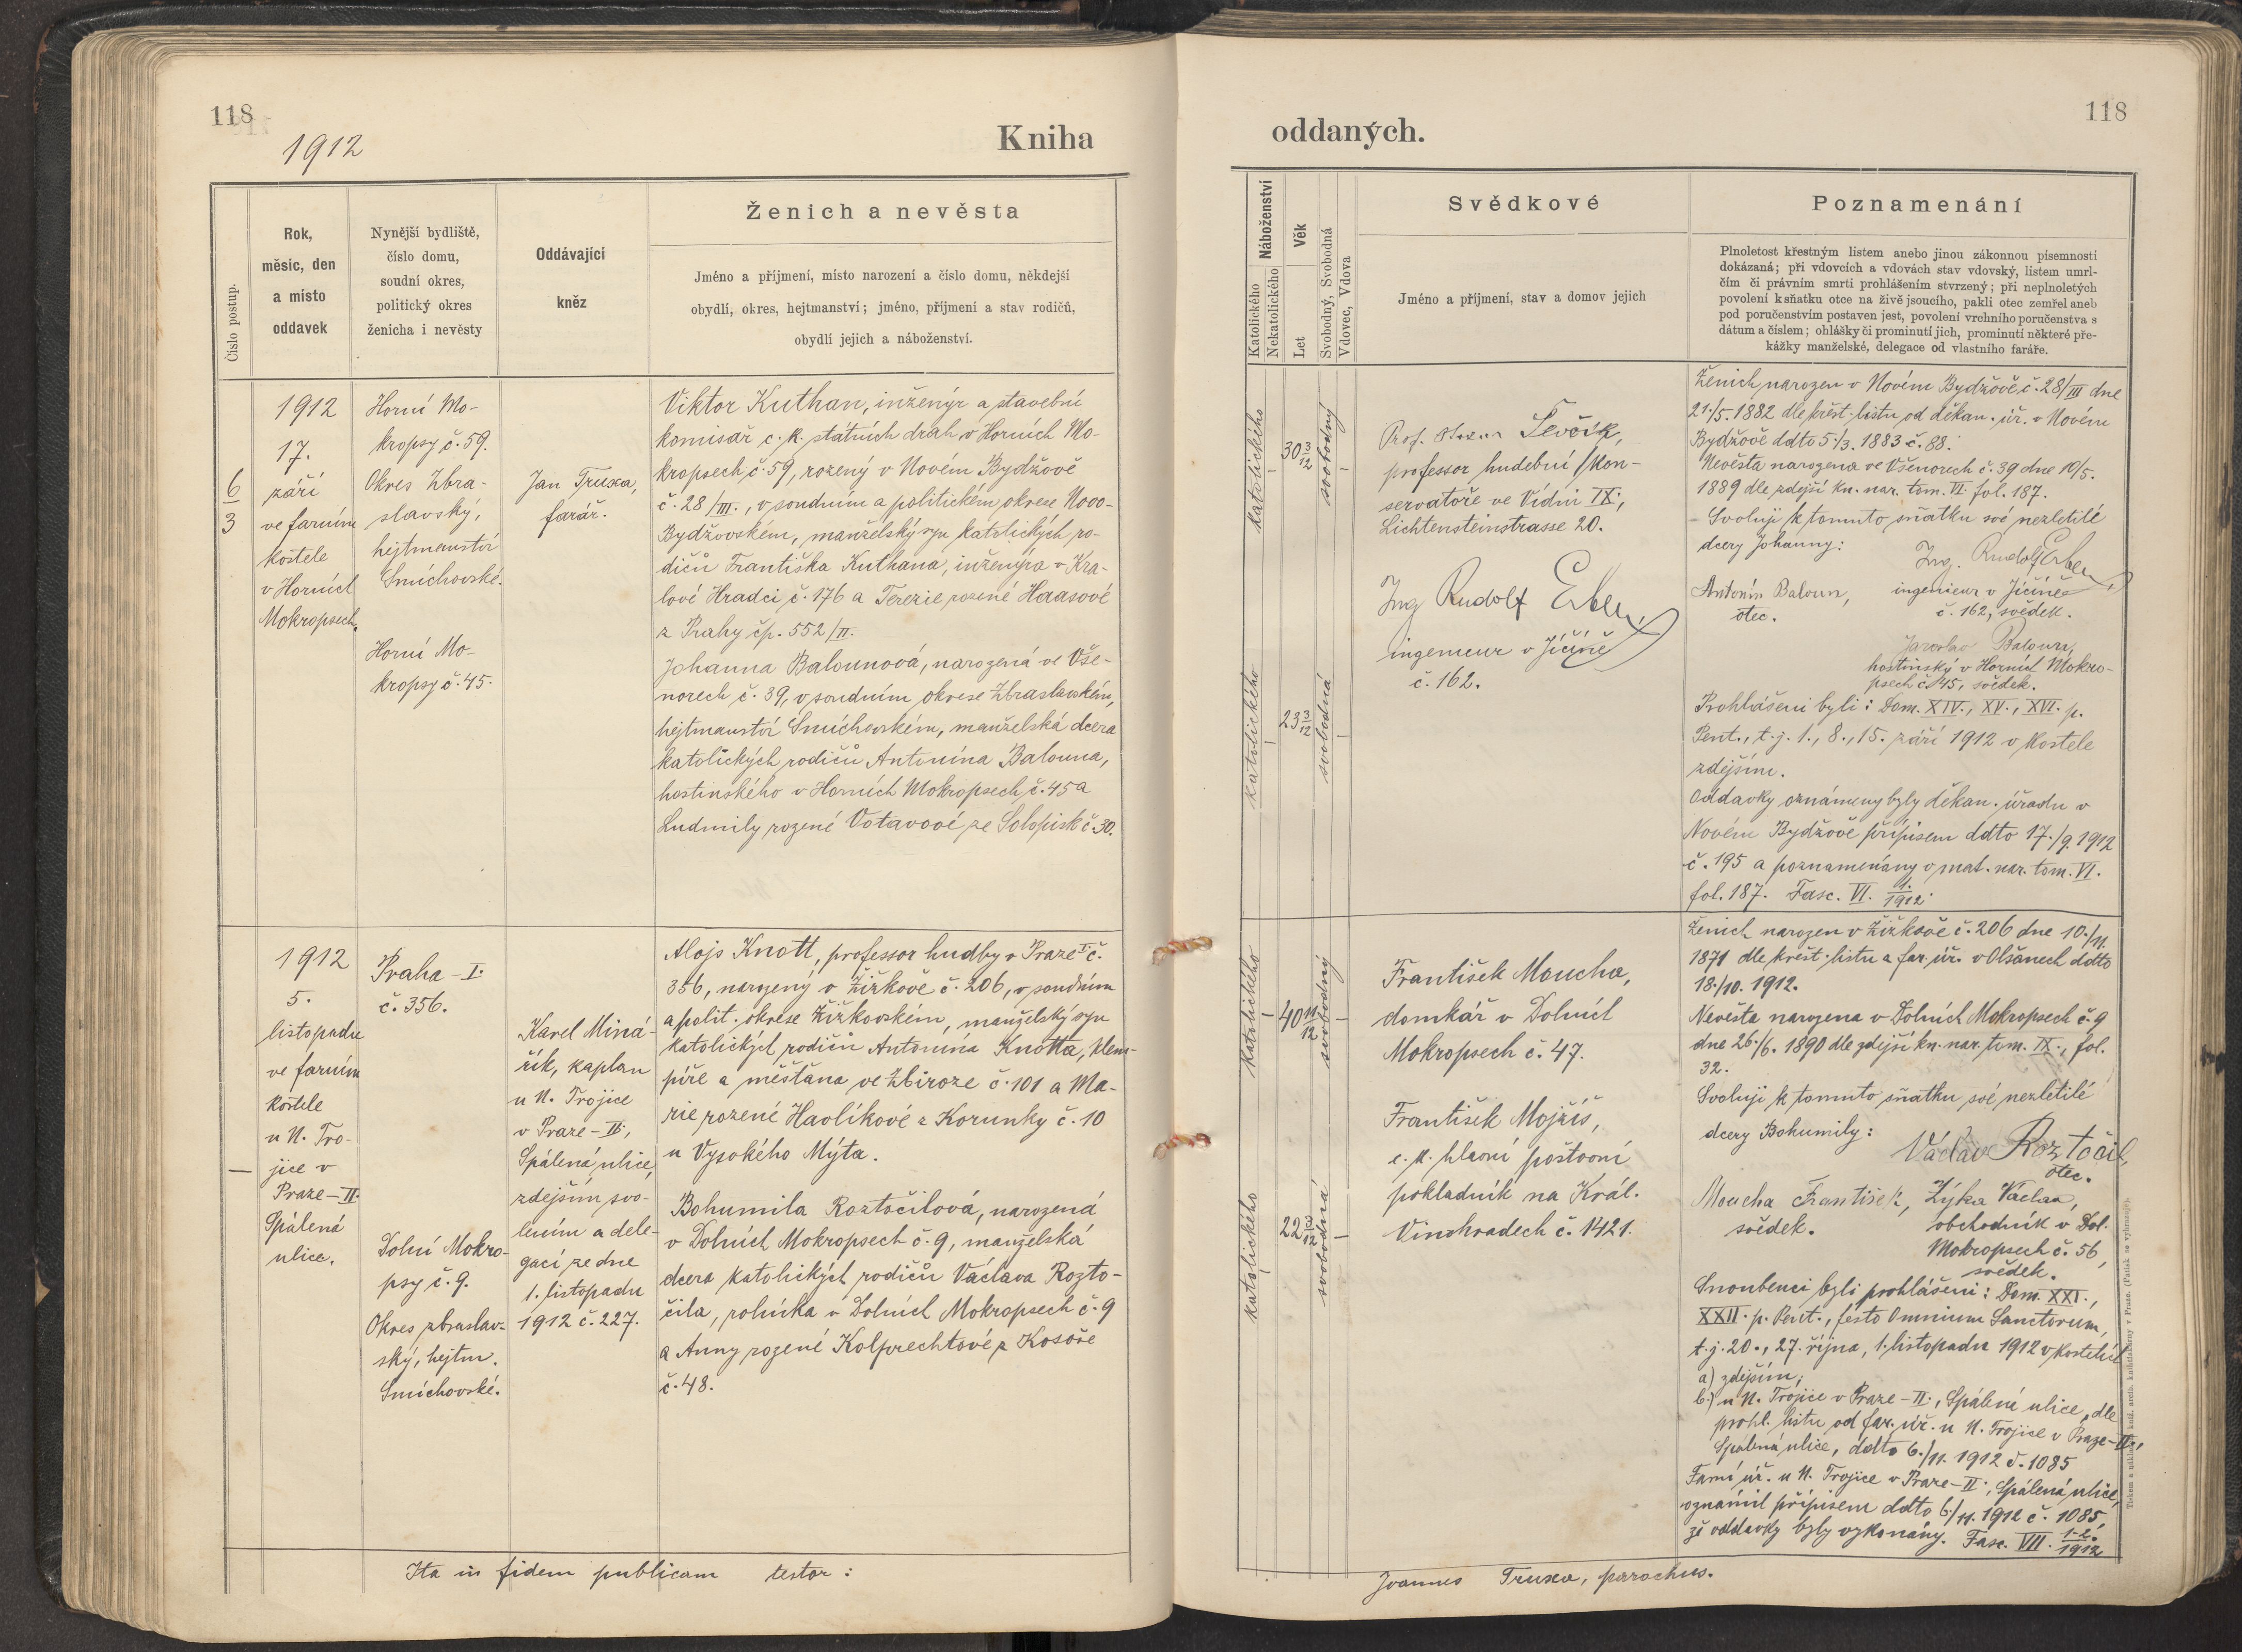 118
1912
Kniha
Číslo postup.
Rok,
měsíc, den
a místo
oddavek
Nynější bydliště,
číslo domu,
soudní okres,
politický okres
ženicha i nevěsty
Oddávající
kněz
Ženich a nevěsta
Jméno a příjmení, místo narození a číslo domu, někdejší
obydlí, okres, hejtmanství; jméno, příjmení a stav rodičů,
obydlí jejich a náboženství.
6
3
1912
17.
září
ve farním
kostele
v Horních
Mokropsech.
Horní Mo-
kropsy č. 59.
Okres Zbra-
slavský,
hejtmanství
Smíchovské.
Horní Mo-
kropsy č. 45.
Jan Truxa,
farář.
Viktor Kuthan, inženýr a stavební
komisař c. k. státních drah v Horních Mo-
kropsech č. 59, rozený v Novém Bydžově
č. 28/III., v soudním a politickém okrese Novo-
Bydžovském, manželský syn katolických ro-
dičů Františka Kuthana, inženýra v Krá-
lové Hradci č. 176 a Terezie rozené Haasové
z Prahy čp. 552/II.
Johanna Balounová, narozená ve Vše-
norech č. 39, v soudním okrese Zbraslavském,
hejtmanství Smíchovském, manželská dcera
katolických rodičů Antonína Balouna,
hostinského v Horních Mokropsech č. 45 a
Ludmily rozené Votavové ze Solopisk č. 30.
1912
5.
listopadu
ve farním
kostele
u N. Tro-
jice v
Praze-II.
Spálená
ulice.
Praha-I.
č. 356.
Dolní Mokro-
psy č. 9.
Okres zbraslav-
ský, hejtm.
Smíchovské.
Karel Miná-
řík, kaplan
u N. Trojice
v Praze-II.,
Spálená ulice,
zdejším svo-
lením a dele-
gací ze dne
1. listopadu
1912 č. 227.
Alojs Knott, professor hudby v Praze I. č.
356, narozený v Žižkově č. 206, v soudním
a polit. okrese Žižkovském, manželský syn
katolických rodičů Antonína Knotta, klem-
píře a měšťana ve Zbiroze č. 101 a Ma-
rie rozené Havlíkové z Korunky č. 10
u Vysokého Mýta.
Bohumila Roztočilová, narozená
v Dolních Mokropsech č. 9, manželská
dcera katolických rodičů Václava Rozto-
čila, rolníka v Dolních Mokropsech č. 9
a Anny rozené Kolprechtové z Kosoře
č. 48.
Ita in fidem publicam testor:
118
oddaných.
Náboženství
Katolického
Nekatolického
Věk
Let
Svobodný, Svobodná
Vdovec, Vdova
Svědkové
Jméno a příjmení, stav a domov jejich
Poznamenání
Plnoletost křestným listem anebo jinou zákonnou písemností
dokázaná; při vdovcích a vdovách stav vdovský, listem umrl-
čím či právním smrti prohlášením stvrzený; při neplnoletých
povolení k sňatku otce na živě jsoucího, pakli otec zemřel aneb
pod poručenstvím postaven jest, povolení vrchního poručenstva s
dátum a číslem; ohlášky či prominutí jich, prominutí některé pře-
kážky manželské, delegace od vlastního faráře.
katolického
30 3/12
svobodný
katolického
23 3/12
svobodná
Prof. Ševčík,
professor hudební kon-
servatoře ve Vídni IX.,
Lichtensteinstrasse 20.
Ing Rudolf Erben,
ingenieur v Jičíně
č. 162.
Ženich narozen v Novém Bydžově č. 28/III dne
21./5. 1882 dle křest. listu od děkan. úř. v Novém
Bydžově ddto 5./3. 1883 č. 88.
Nevěsta narozena ve Všenorech č. 39 dne 10/5.
1889 dle zdejší kn. nar. tom. VI. fol. 187.
Svoluji k tomuto sňatku své nezletilé
dcery Johanny:
Ing. Rudolf Erben,
ingenieur v Jičíně
č. 162, svědek.
Antonín Baloun,
otec.
Jaroslav Baloun,
hostinský v Horních Mokro-
psech č. 45, svědek.
Prohlášeni byli: Dom. XIV., XV., XVI. p.
Pent., t. j. 1., 8., 15. září 1912 v kostele
zdejším.
Oddavky oznámeny byly děkan. úřadu v
Novém Bydžově přípisem ddto 17./9. 1912
č. 195 a poznamenány v mat. nar. tom. VI.
fol. 187. Fasc. VI. 1./1912.
katolického
40 11/12
svobodný
katolického
22 3/12
svobodná
František Moucha,
domkář v Dolních
Mokropsech č. 47.
František Mojžíš,
c. k. hlavní poštovní
pokladník na Král.
Vinohradech č. 1421.
Ženich narozen v Žižkově č. 206 dne 10./11.
1871 dle křest. listu a far. úř. v Olšanech ddto
18./10. 1912.
Nevěsta narozena v Dolních Mokropsech č. 9
dne 26./6. 1890 dle zdejší kn. nar. tom. IX., fol.
32.
Svoluji k tomuto sňatku své nezletilé
dcery Bohumily:
Václav Roztočil,
otec.
Moucha František,
svědek.
Zýka Václav,
obchodník v Dol.
Mokropsech č. 56,
svědek.
Snoubenci byli prohlášeni: Dom. XXI.,
XXII. p. Pent., festo Omnium Sanctorum,
t. j. 20., 27. října, 1. listopadu 1912 v kostelích
a) zdejším;
b.) u N. Trojice v Praze-II., Spálená ulice, dle
prohl. listu od far. úř. u N. Trojice v Praze-II.,
Spálená ulice, ddto 6./11. 1912 č. 1085
Farní úř. u N. Trojice v Praze-II., Spálená ulice,
oznámil přípisem ddto 6./11. 1912 č. 1085,
že oddavky byly vykonány. Fasc. VII. 1-2./1912
Joannes Truxa, parochus.